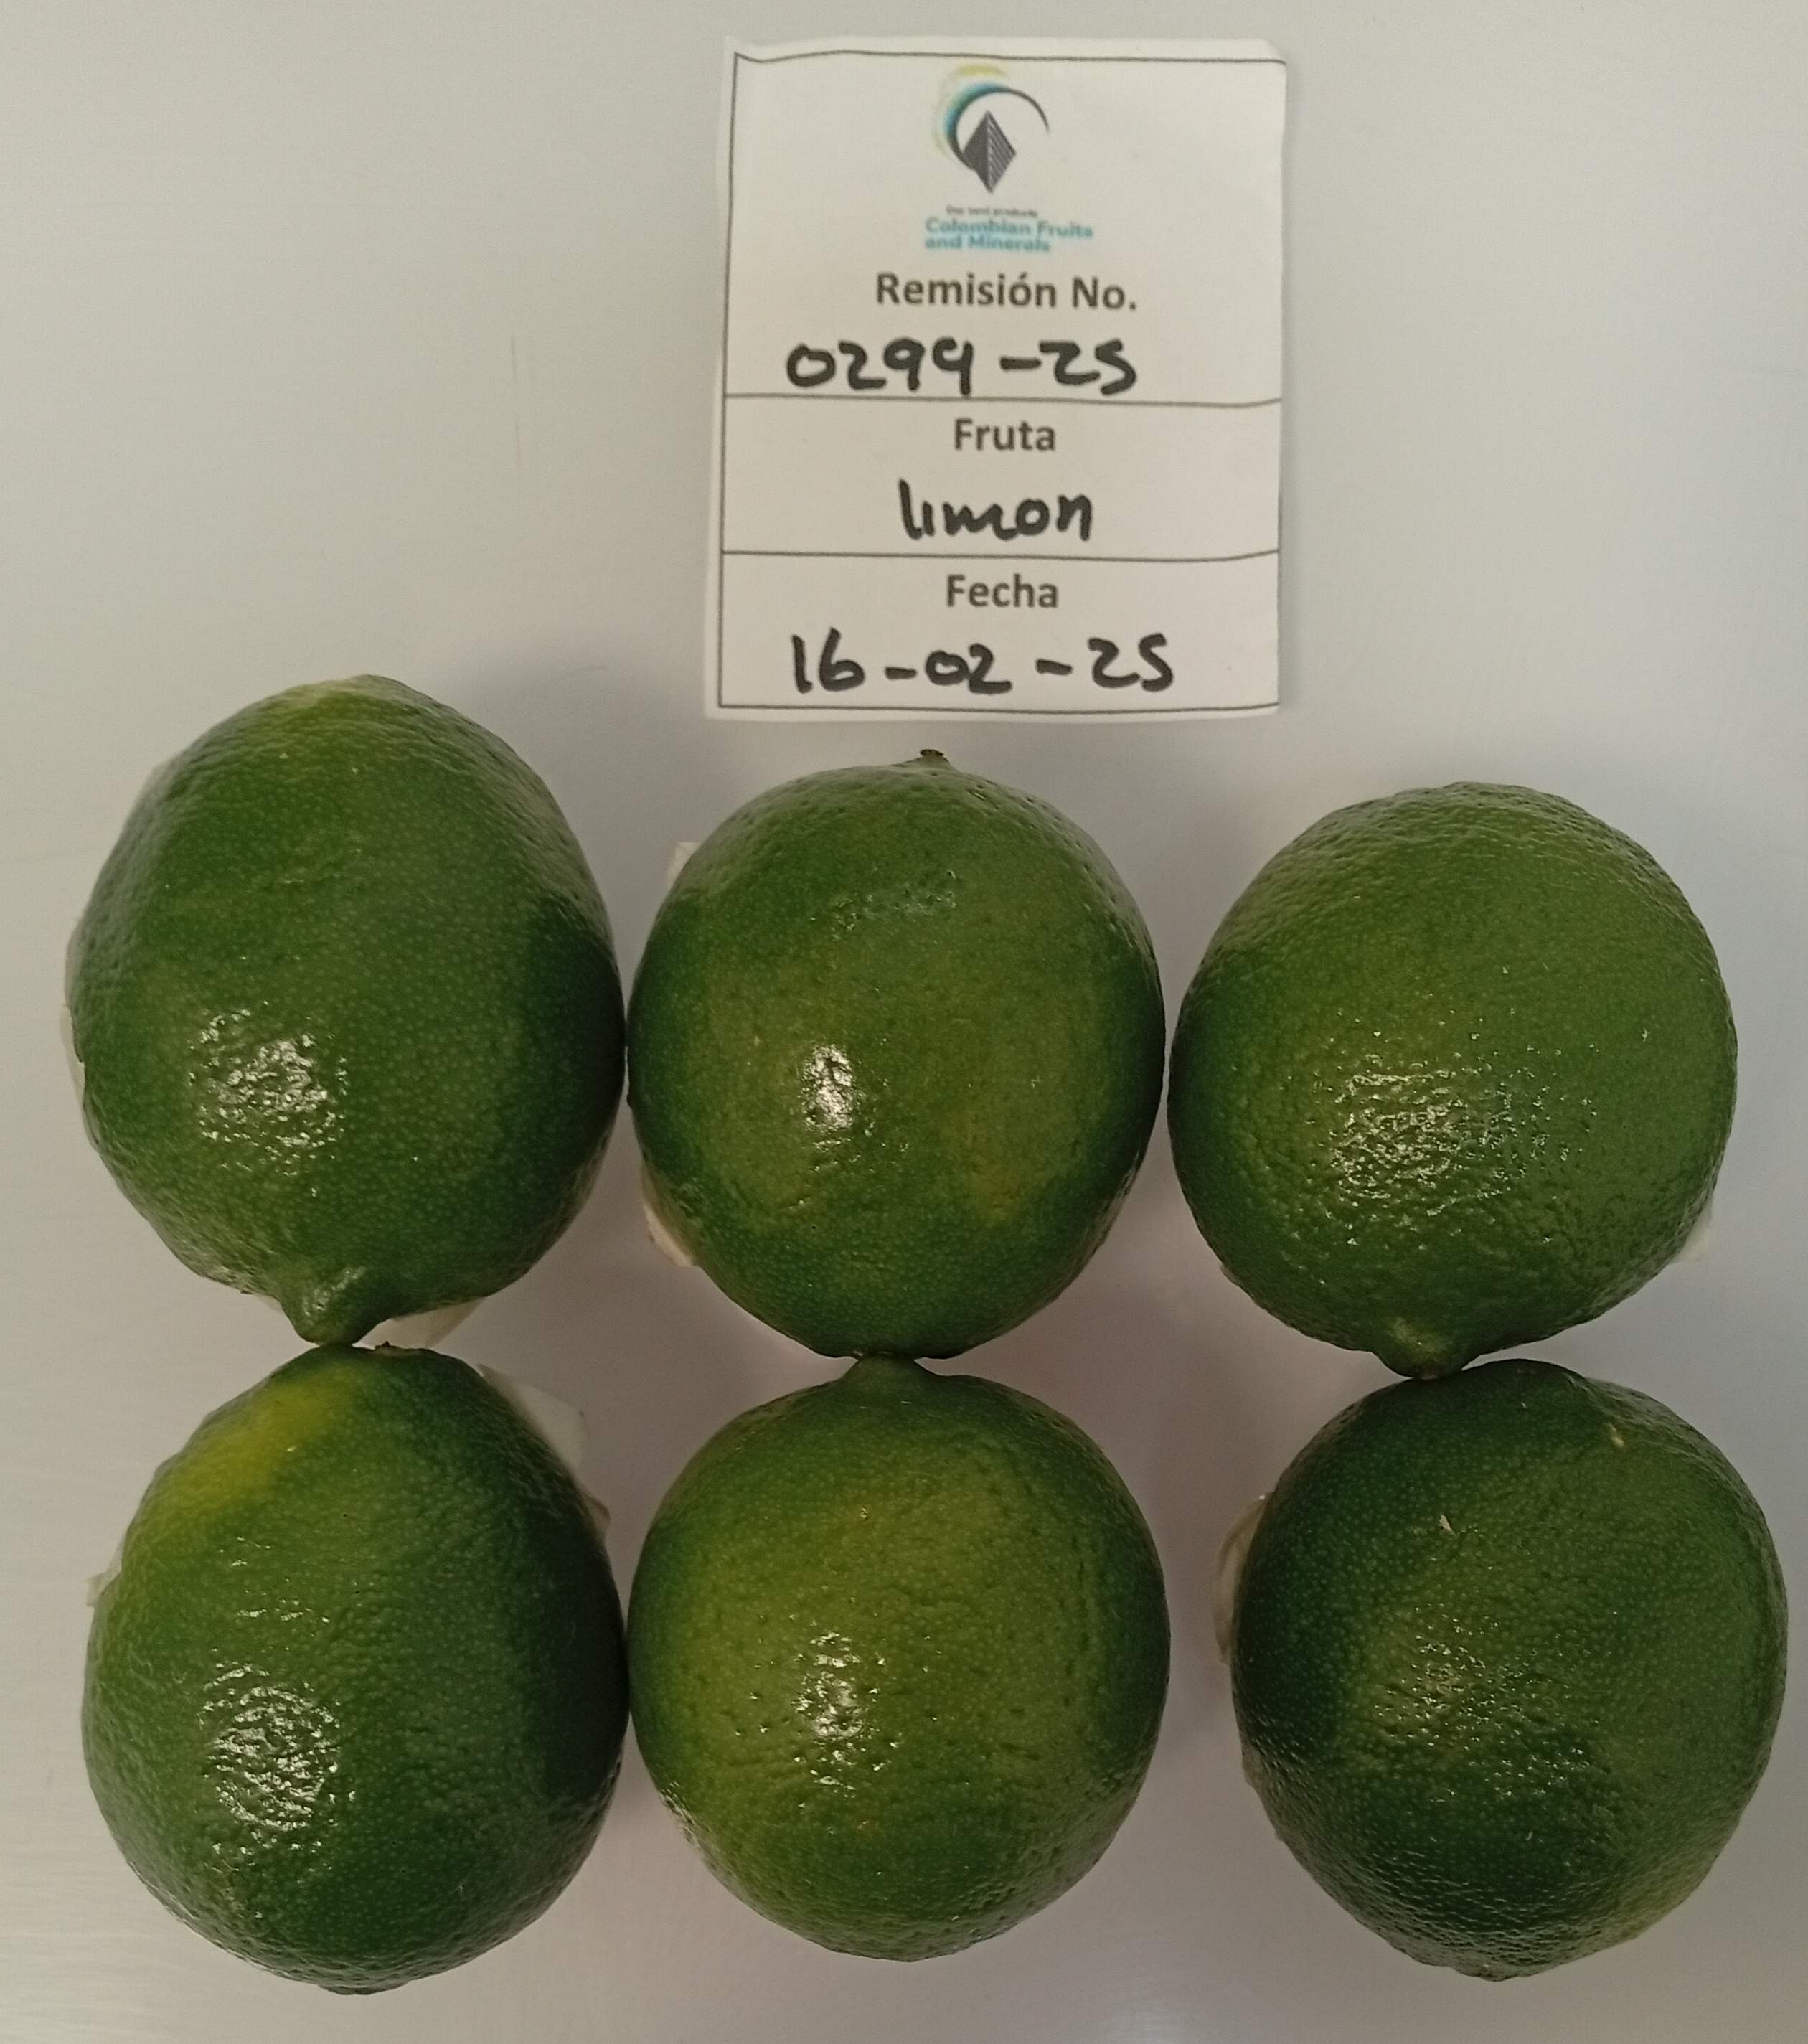 Colombian Fruits
and Minerals
Remisión No.
0299-25
Fruta
limon
Fecha
16-02-25